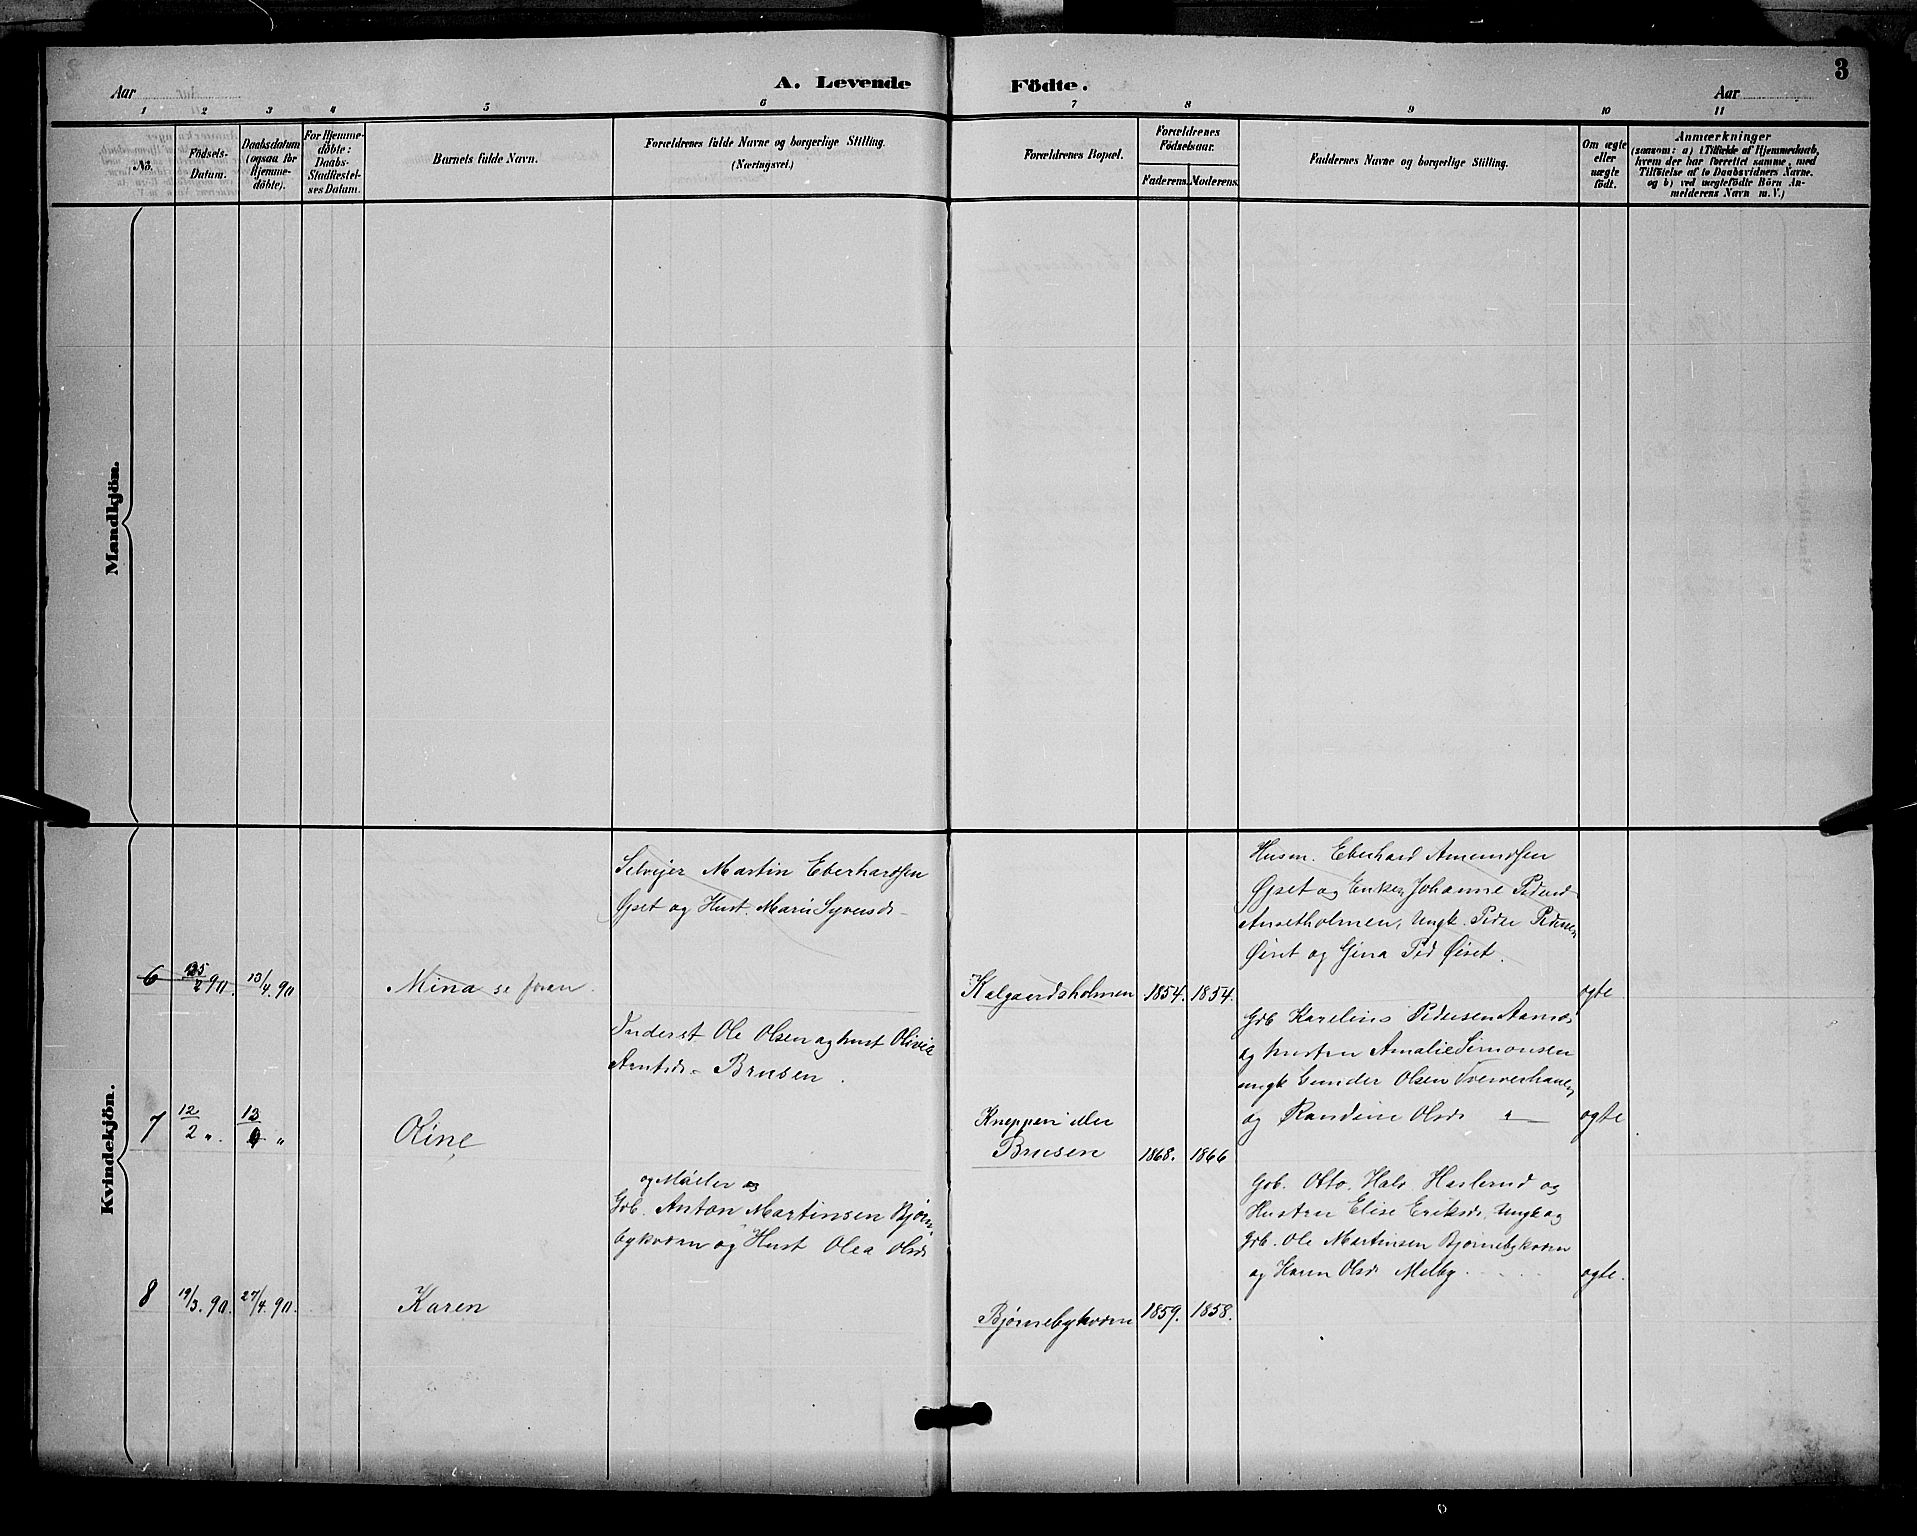 A. Levende Födte.
3
Aar
Aar
1 2 3 4 5 6 7 8 9 10 11
No.
Födsels-Datum.
Daabsdatum (ogsaa for Hjemme-döbte).
For Hjemme-döbte: Daabs-Stadfæstel-ses Datum.
Barnets fulde Navn.
Forældrenes fulde Navne og borgerlige Stilling. (Næringsvei.)
Forældrenes Bopæl.
Forældrenes Födselsaar.
Faderens.
Moderens.
Faddernes Navne og borgerlige Stilling.
Om ægte eller uægte födt.
Anmærkninger
(saasom: a) i Tilfælde af Hjemmedaab,
hvem der har forrettet samme, med
Tilföielse af to Daabsvidners Navne.
og b) ved uægtefödte Börn An-
melderens Navn m. V.)
Mandkjön.
Kvindekjön.
Selvejer Martin Eberhardsen
Øset og Hust. Marie Syversdr
Husm. Eberhard Amundsen
Øset og Enken Johanne Pedersd
Ansetholmen, Ungk. Peder Pedersen
Øiset og Gina Ped Øiset.
6 25/2 90. 13/4. 90 Mina se foran. Kalgaardsholmen 1854. 1854. ægte.
Inderst Ole Olsen og hust Olivia
Arntsdr - Brusen.
Gdb Karelius Pedersen Aamos
og hustru Amalie Simonsen
ungk Gunder Olsen
og Randine Olsdr "
7 12/2 ". 13/4 " Oline Kneppen eller
Brusen 1868. 1866 ægte
og Møller og
Gdb. Anton Martinsen Bjørn
bykværn og Hust Olea Olsdr
Gdb. Otto Hals Haslerud og
Hustru Elise Eriksdr, Ungk og
Gdb. Ole Martinsen Bjørnebykværn
og Karen Olsdr Melby.
8 19/3. 90. 27/4. 90. Karen Bjørnebykværn 1859. 1858. ægte.